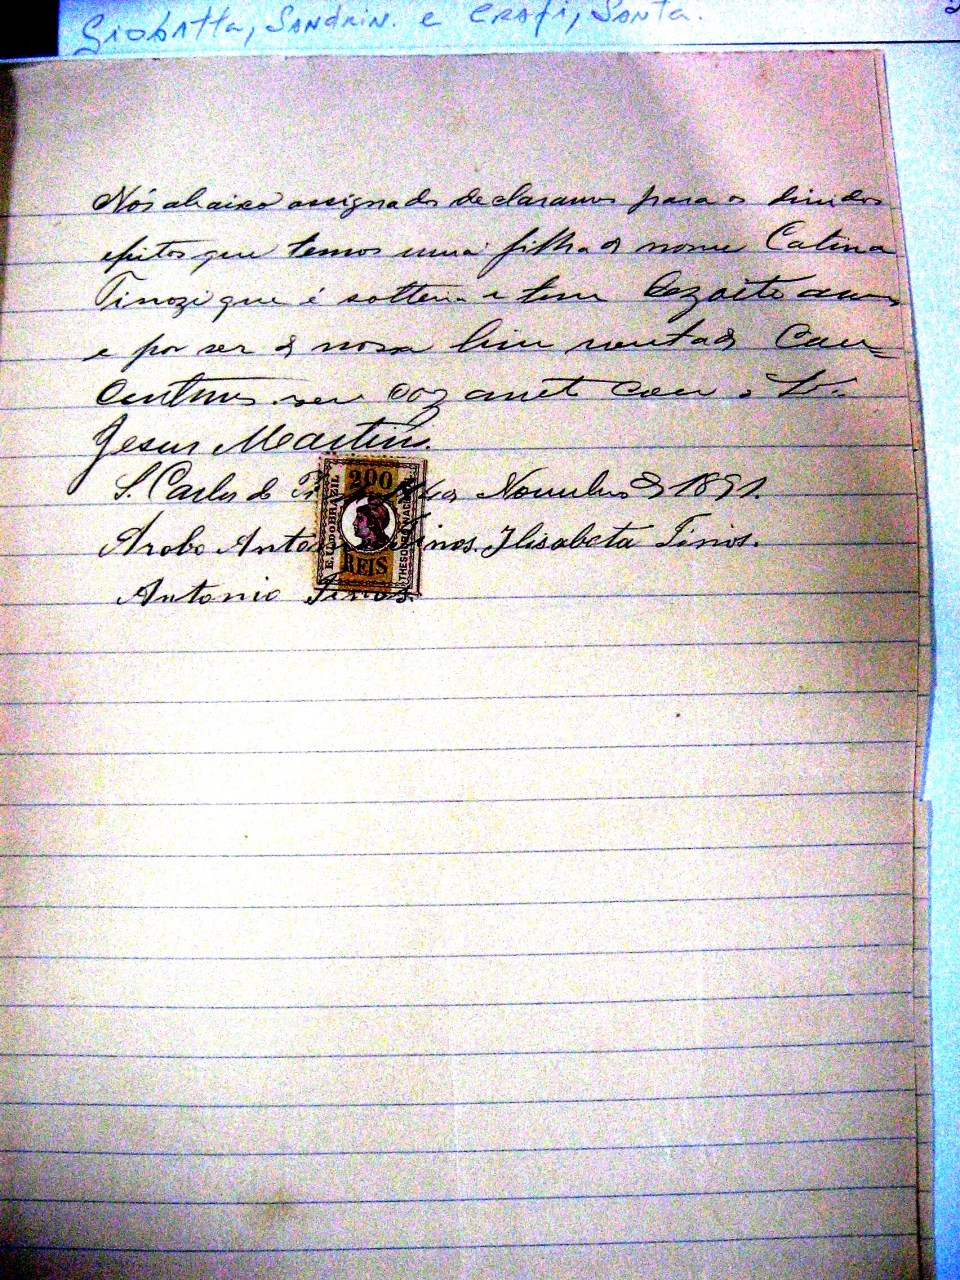 Giobatta, Sandrin. e Crafi, Santa.
Nós abaixo assignados declaramos para os dividos
efitos que temos uma filha de nome Catina
Tinozi que é solteria e tem dezoito annos
e por ser de nosa livre ventade Con=
centimos ser cazanet com o Sr.
Jesus Martin.
S. Carlos do Novembro de 1891.
200
REIS
E.U. DO BRAZIL
THESOURO NACIONAL
Arobo Antonio Tinos. Ilisabeta Tinos.
Antonio Tinos.